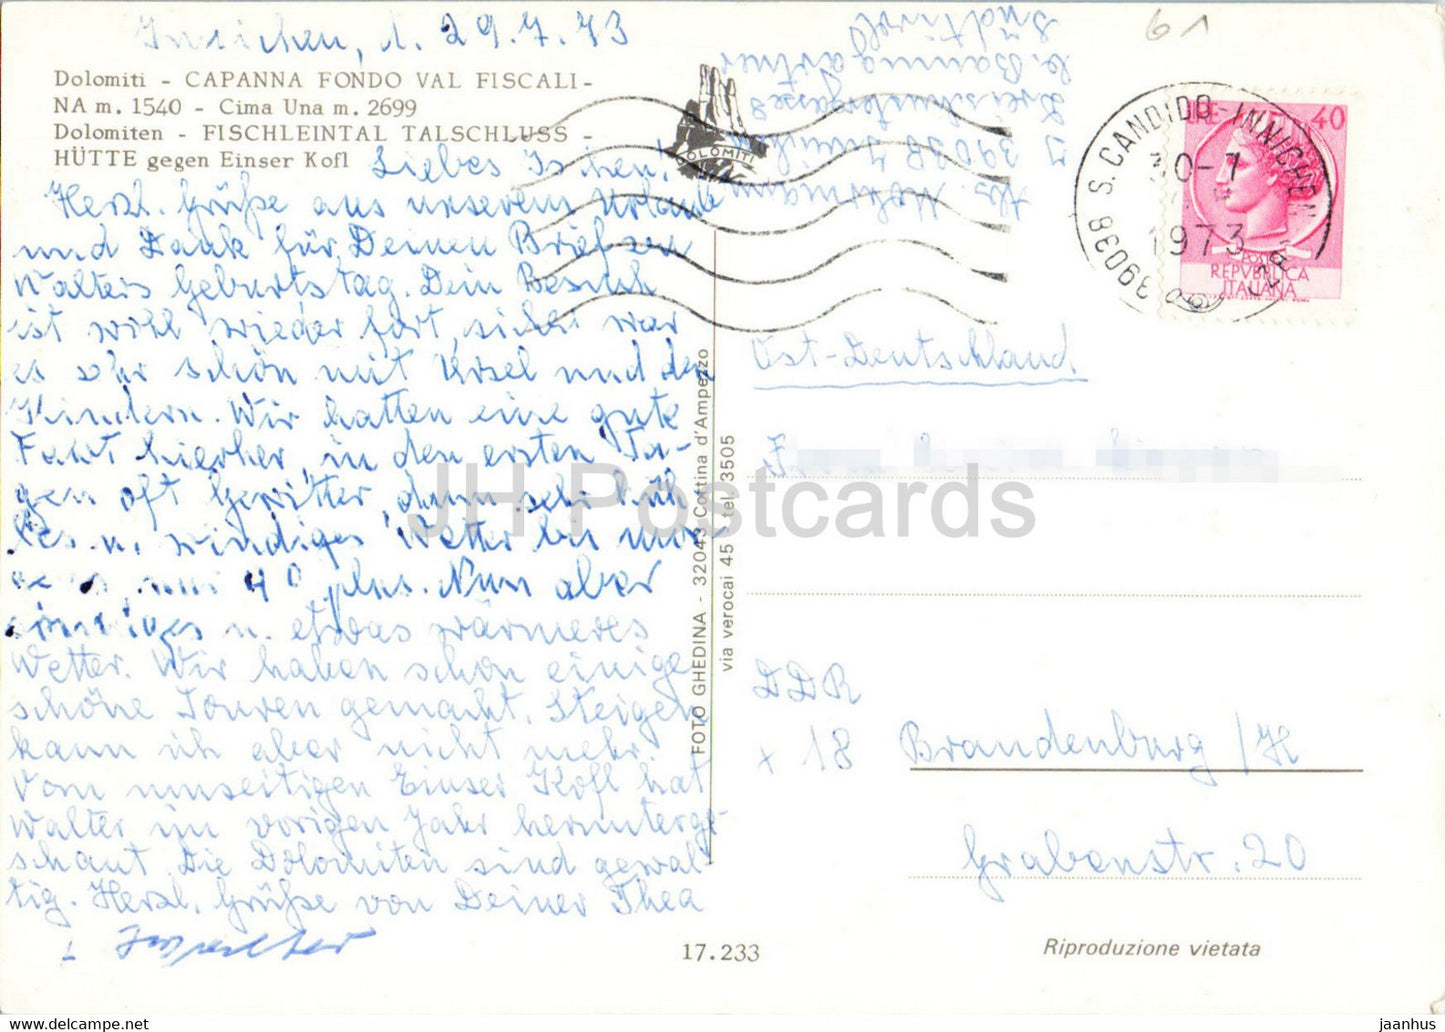 Innichen, d. 29.7.73
Dolomiti - CAPANNA FONDO VAL FISCALI-
NA m. 1540 - Cima Una m. 2699
Dolomiten - FISCHLEINTAL TALSCHLUSS -
HÜTTE gegen Einser Kofl
Liebes
Herzl. Grüße aus unserem Urlaub
und Dank für Deinen Brief zu
Walters Geburtstag. Dein Besuch
ist wohl wieder fort, sicher war
es sehr schön mit Ursel und den
Kindern. Wir hatten eine gute
Fahrt hierher, in den ersten Ta-
gen oft Gewitter, dann sehr küh-
les u. windiges Wetter bei
nur 4° plus. Nun aber
sonniges u. etwas wärmeres
Wetter. Wir haben schon einige
schöne Touren gemacht. Steigen
kann ich aber nicht mehr.
Vom umseitigen Einser Kofl hat
Walter im vorigen Jahr herunterge-
schaut. Die Dolomiten sind gewal-
tig. Herzl. Grüße von Deiner Thea
17.233
FOTO GHEDINA - 32043 Cortina d'Ampezzo
via verocai 45 tel. 3505
Abs.
I 39038
Südtirol
DOLOMITI
61
39038 S. CANDIDO-INNICHEN
30-7
1973
LIRE 40
POSTE
REPVBBLICA
ITALIANA
Ost-Deutschland
DDR
x 18 Brandenburg/H
Grabenstr. 20
Riproduzione vietata
JH Postcards
hip-stamp.com
jaanhus